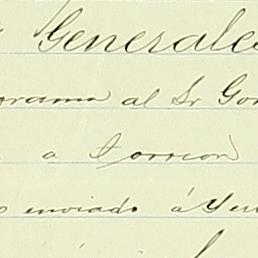 Generales
grama al Sr Gon
a Torreon
enviado á Yer